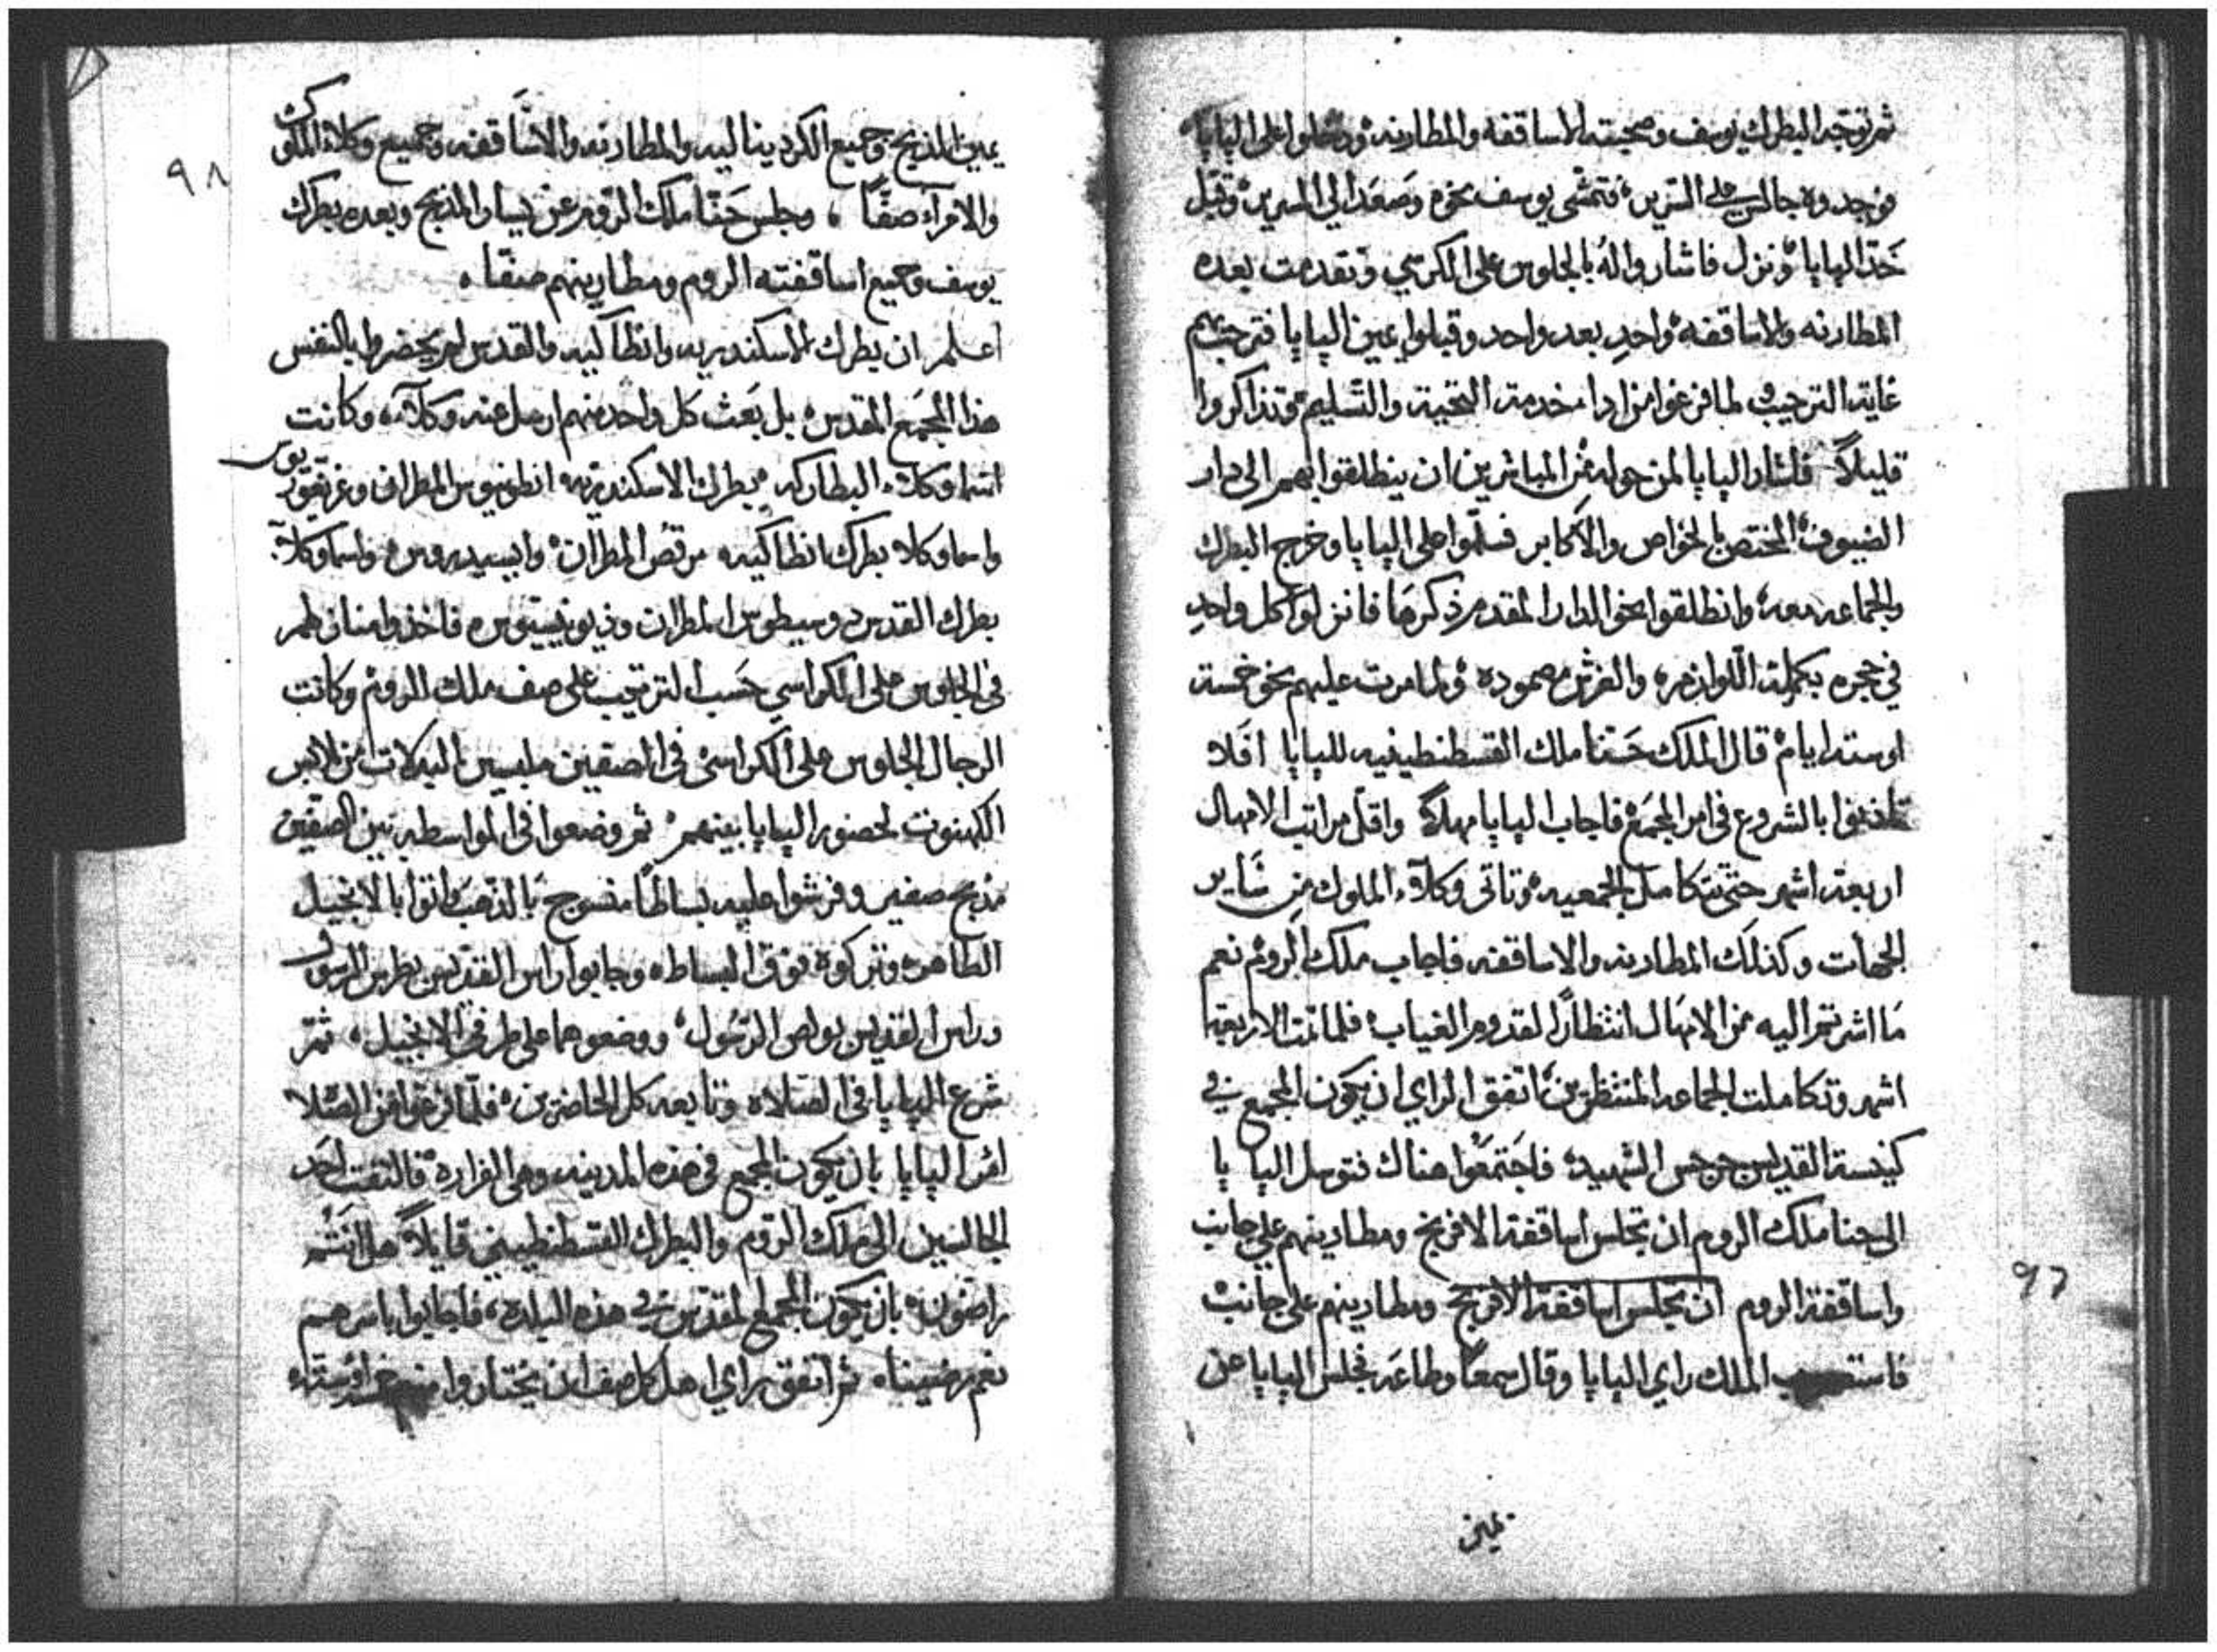 ثم توجه البطرك يوسف وصحبته الاساقفه والمطارنه ودخلوا على الپاپا
فوجدوه جالس على السرير فتمشى يوسف نحوه وصَعَد الى السرير وقبّل
خَدّ الپاپا ونزل فاشاروا لهُ بالجلوس على الكرسي وتقدمت بعده
المطارنه والاساقفه واحدٍ بعد واحد وقبلوا يمين الپاپا فترحب بهم
غاية الترحيب ولما فرغوا من اداء خدمة التحية والتسليم وتذاكروا
قليلاً فاشار الپاپا لمن حوله من المباشرين ان ينطلقوا بهم الى دار
الضيوف المختص بالخواص والاكابر فسلّموا على الپاپا وخرج البطرك
والجماعه معه وانطلقوا نحو الدار المقدم ذكرها فانزلوا كل واحدٍ
في حجره بكملة اللوازمه والفرش مصموده ولما مرت عليهم نحو خمسة
او ستة ايام قال الملك حَنّا ملك القسطنطينيه للپاپا افلا
تاذنوا بالشروع فى امر المجمَع فاجاب الپاپا مهلاً واقل مراتب الامهال
اربعة اشهر حتى تتكامل الجمعيه وتاتى وكلاَء الملوك مِن سَاير
الجهات وكذلك المطارنه والاساقفه فاجاب ملك الروم نعم
مَا اشرتم اليه من الامهَال انتظارًا لقدوم الغياب فلما تمت الاربعة
اشهر وتكاملت الجماعه المنتظرين اتفق الراي ان يكون المجمع في
كنيسة القديس جرجس الشهيد فاجتَمعُوا هناك فتوسل الپاپا
الى حنا ملك الروم ان تجلس اساقفة الافرنج ومطارينهم علي جانب
واساقفة الروم ان تجلس اساقفة الافرنج ومطارينهم على جانب
الملك راي الپاپا وقال سمعًا وطاعَه فجلس الپاپا عن
يمين
٩٧
يمين المذبح وجميع الكرديناليه والمطارنه والاسَاقفه وجميع وكلاء الملوك
والامرآء صفًّا ، وجلس حَنّا ملك الروم عن يسار المذبح وبعده بطرك
يوسف وجميع اساقفته الروم ومطارينهم صفّا ،
اعلم ان بطرك الاسكندريه وانطاكيه والقدس لم يحضروا بالنفس
هذا المجمَع المقدس بل بَعث كل واحد منهم ارسل عنه وكلآء، وكانت
اسما وكلاء البطاركه بطرك الاسكندريه انطونيوس المطران وغريغوريوس
واسما وكلاء بطرك انطاكيه مرقصُ المطران وايسيدوروس واسما وكلآء
بطرك القدس دوسيطوس المطران وذيونيسيوس فاخذوا منازلهم
فى الجلوس على الكراسي حَسب الترتيب على صف ملك الروم وكانت
الرجال الجلوس على الكراسى فى الصفين ملبسين البدلات من ملابس
الكهنوت لحضور الپاپا بينهم ثم وضعوا فى الواسطه بين الصفين
مذبح صغير وفرشوا عليه بساطًا منسوج بالذهب واتوا بالانجيل
الطاهر وتركوه فوق البساط وجابوا راس القديس بطرس الرسول
وراس القديس بولص الرسُول ووضعوهما على طرفى الانجيل ، ثمّ
شرع الپاپا فى الصلاه وتابعه كل الحاضرين فلمّا فرغوا من الصلاه
امَر الپاپا بان يكون المجمع فى هذه المدينه وهى الفراره فالتفت احَد
الجالسين الى ملك الروم والبطرك القسطنطيني قايلاً هل انتُم
راضون بان يكون المجمع المقدس في هذه البلده ، فاجابوا باسرهم
نعم رضينا ثم اتفق براي اهل كل صف ان يختاروا منهم
٩٨